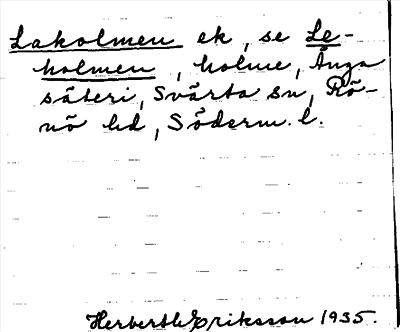 Lakolmen ek, se Le-
holmen, holme, Ånga
säteri, Svärta sn, Rö-
nö hd, Söderm. l.
Herberth Eriksson 1935.